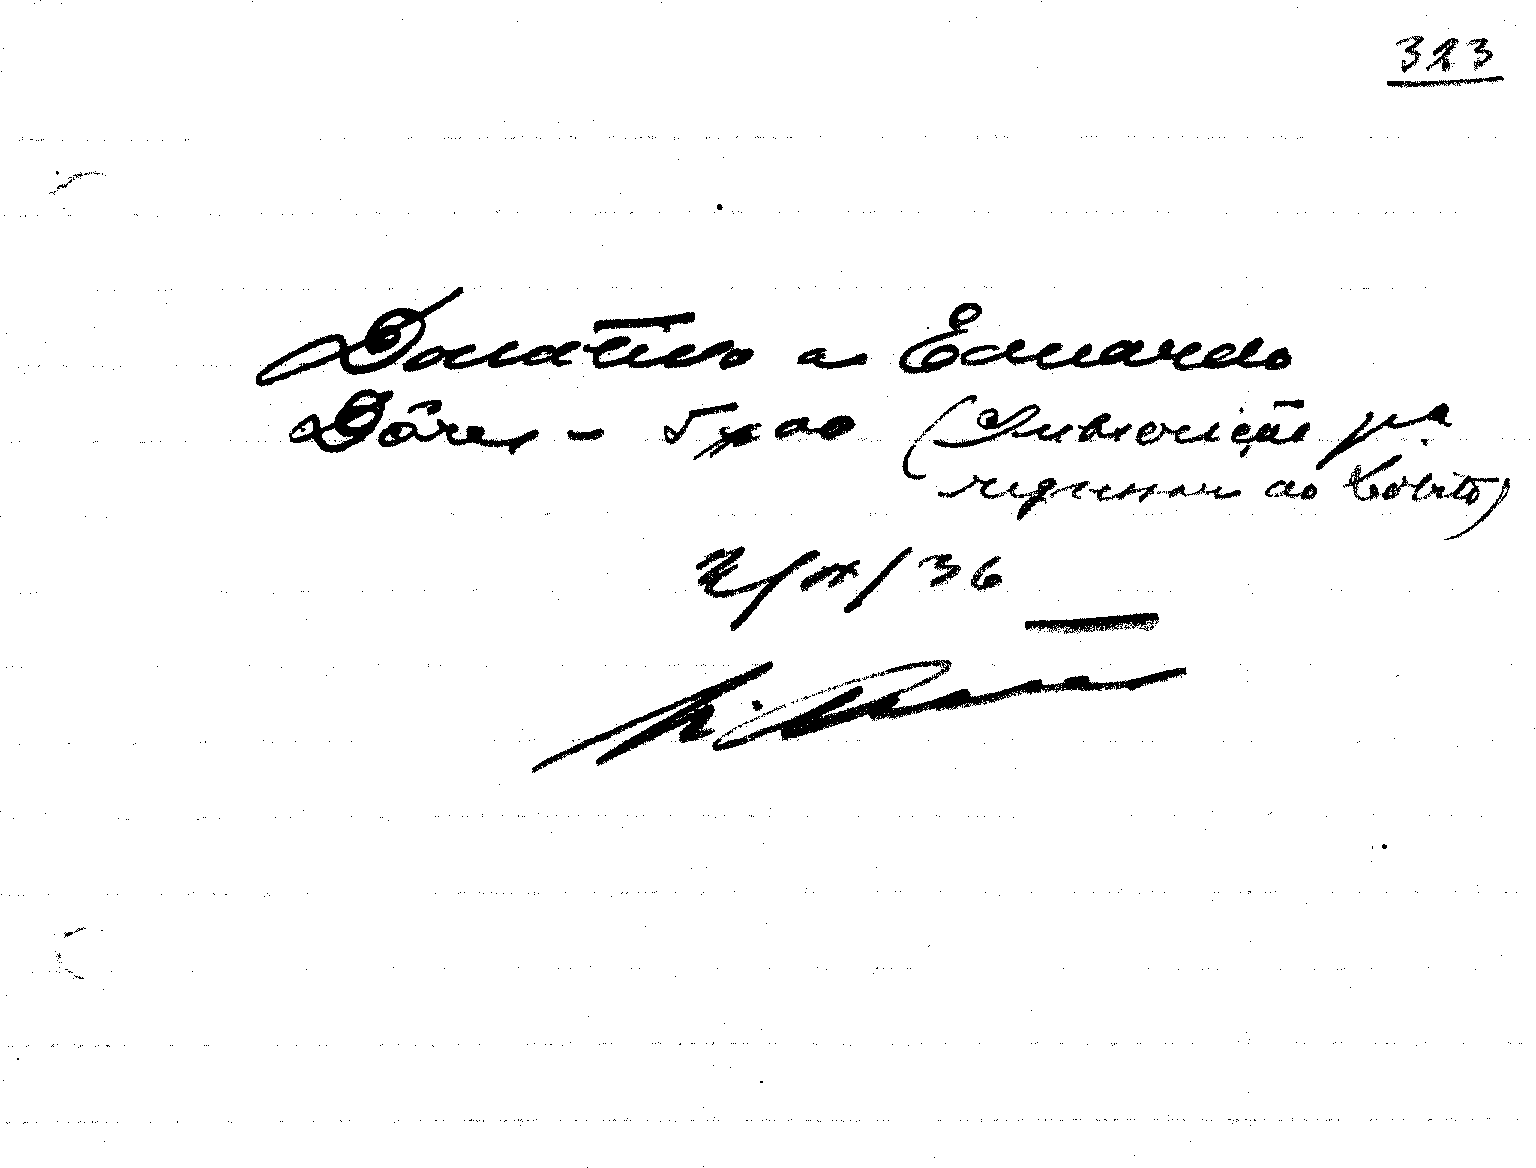 323
Donativo a Eduardo
Dôres - 5$00 (Subscrição pª
regressar ao Lobito)
2/IX/36